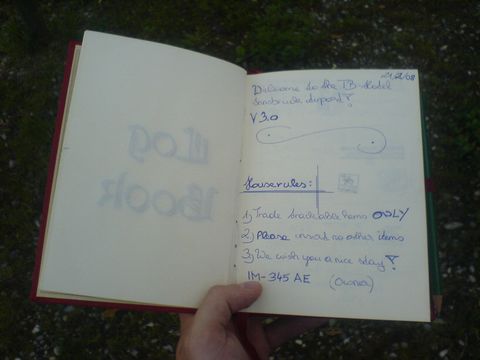 Log
Book
21.2/08
Welcome to the TB-Hotel
Innsbruck Airport!
V 3.0
Houserules:
1) Trade trackable items ONLY
2) Please insert no other items
3) We wish you a nice stay!
IM-345 AE (Owner)